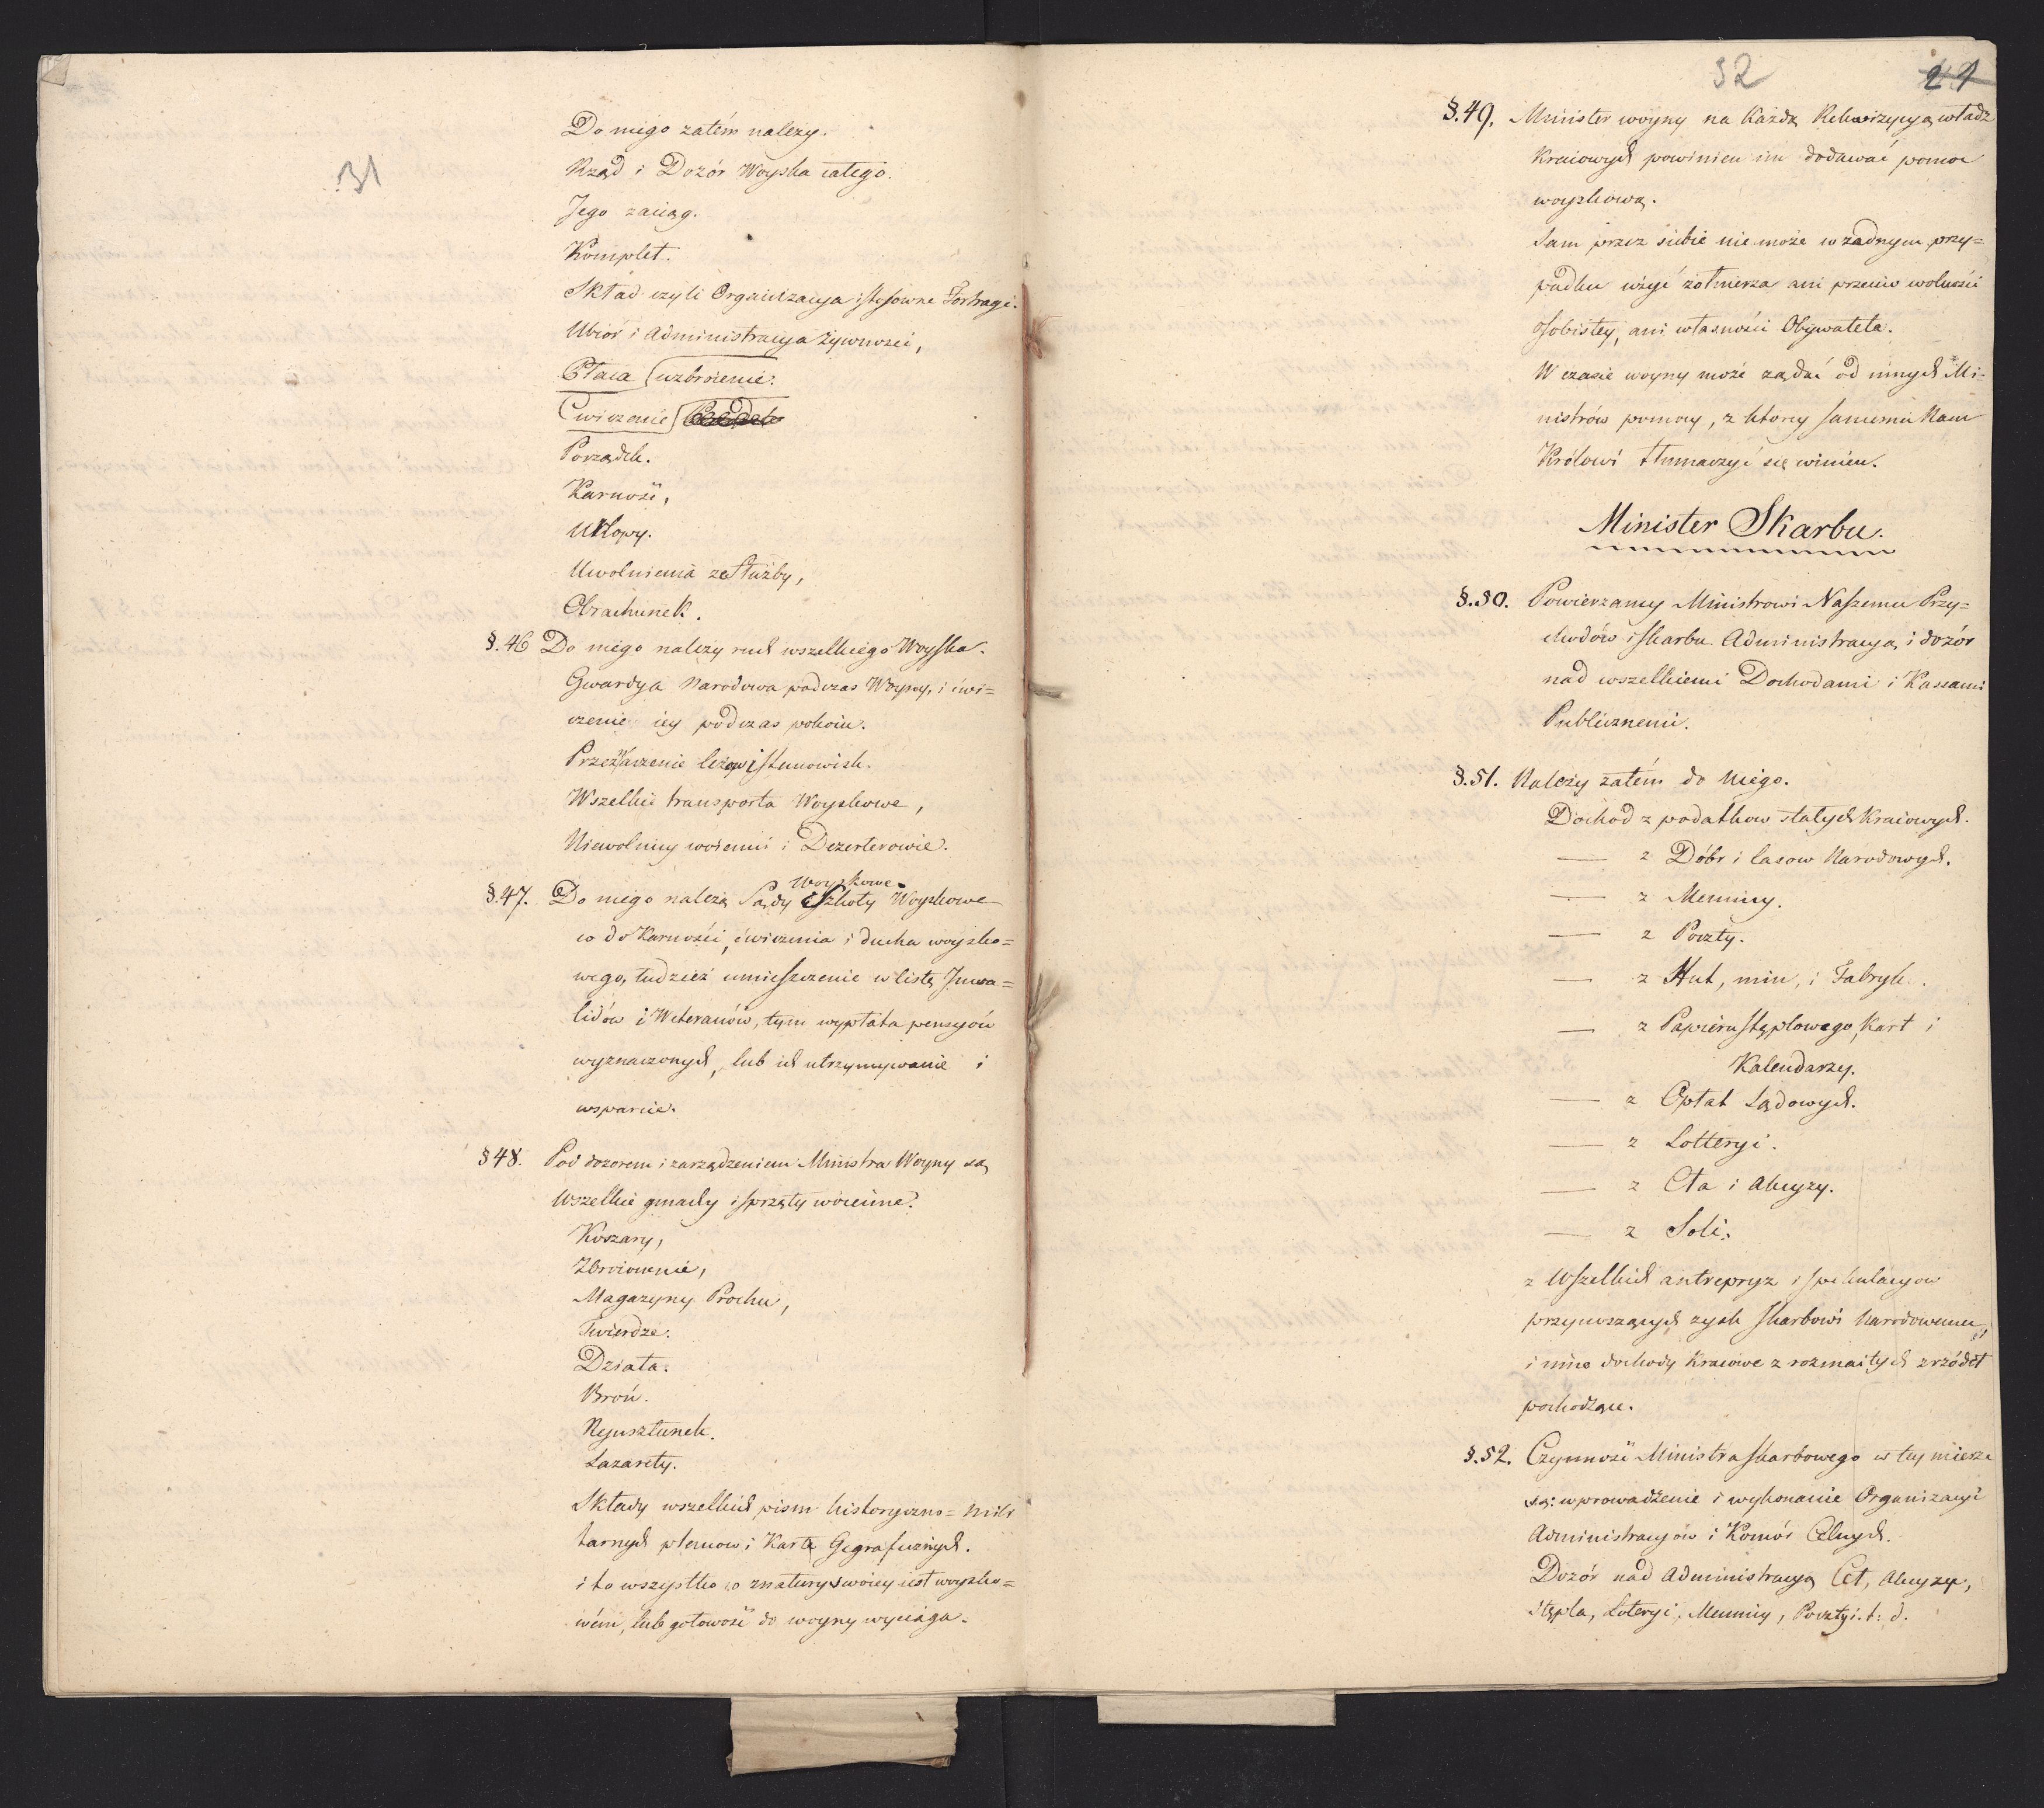 31
Do niego zatém należy.
Rząd i Dozór Woyska całego.
Jego zaciąg.
Komplet.
Skład czyli Organizacya i stosowne Fortragi.
Ubiór i Administracya żywności,
Płaca uzbroienie.
Cwiczenie
Porządek.
Karność,
Urlopy.
Uwolnienia ze służby,
Obrachunek.
§. 46 Do niego należy ruch wszelkiego Woyska.
Gwardya Narodowa podczas Woyny, i ćwi=
czenie iey podczas pokoiu.
Przeznaczenie leżow i stanowisk.
Wszelkie transporta Woyskowe,
Niewolnicy woienni i Dezerterowie.
woyskowe
§. 47. Do niego należą Sądy i Szkoły Woyskowe
co do Karności, ćwiczenia i ducha woysko=
wego, tudzież umieszczenie w listę Inwa=
lidów i Weteranów, tym wypłata pensyów
wyznaczonych, lub ich utrzymywanie i
wsparcie.
§ 48. Pod dozorem i zarządzeniem Ministra Woyny są
Wszelkie gmachy i sprzęty woienne.
Koszary,
Zbroiownie,
Magazyny Prochu,
Twierdze.
Działa.
Broń.
Rynsztunek.
Lazarety.
Składy wszelkich pism historyczno= mili
tarnych planow i Kart Gegraficznych.
i to wszystko co z natury swoiey iest woysko=
wém, lub gotowość do woyny wyciąga.
32 21
§. 49. Minister woyny na każdą Rekwizycyą władz
Kraiowych powinien im dodawać pomoc
woyskową.
Sam przez siebie nie może w żadnym przy=
padku użyć żołnierza ani przeciw wolności
osobistey, ani własności Obywatela.
W czasie woyny może żądać od innych Mi=
nistrów pomocy, z ktorey samemu Nam
Królowi tłumaczyć się winien.
Minister Skarbu.
§. 50. Powierzamy Ministrowi Naszemu Przy=
chodów i skarbu Administracyą i dozór
nad wszelkiemi Dochodami i Kassami
Publicznemi.
§. 51. Należy zatém do niego.
Dochod z podatkow stałych Kraiowych.
— z Dóbr i lasow Narodowych.
— z Mennicy.
— z Poczty.
— z Hut, min, i Fabryk.
— z Papieru stęplowego, Kart i
Kalendarzy.
— z Opłat Sądowych.
— z Lotteryi.
— z Cła i Akcyzy.
— z Soli.
z Wszelkich antrepryz i spekulacyow
przynoszących zysk skarbowi Narodowemu,
i inne dochody Kraiowe z rozmaitych zrzódeł
pochodzące.
§. 52. Czynność Ministra skarbowego w tey mierze
są: wprowadzenie i wykonanie Organizacyi
Administracyów i Komór Celnych.
Dozór nad Administracyą Ceł, Akcyzy,
Stępla, Loteryi, Mennicy, Poczty i. t: d.